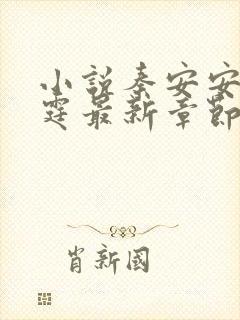 小說秦安安
霆最新章節
肖新國